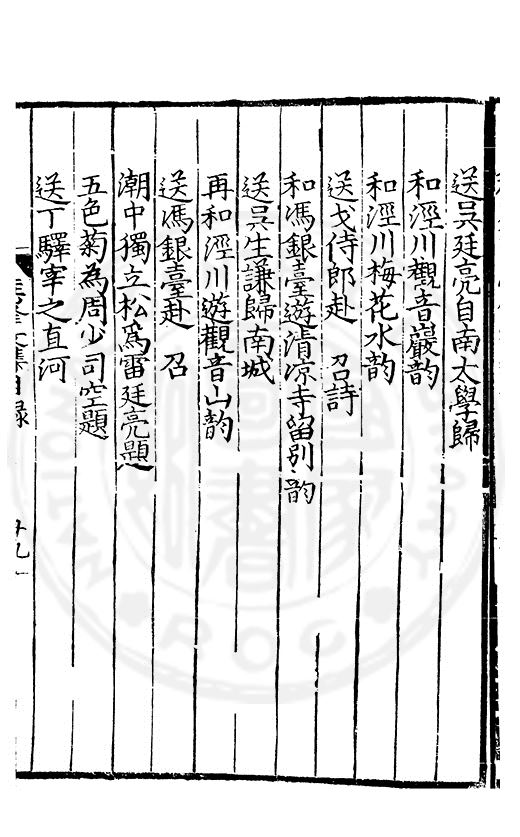 送吳廷亮自南太學歸
和涇川觀音巖韵
和涇川梅花水韵
送戈侍郎赴　召詩
和馮銀臺遊清凉寺留別韵
送吳生謙歸南城
再和涇川遊觀音山韵
送馮銀臺赴　召
潮中獨立松爲雷廷亮題
五色菊為周少司空題
送丁驛宰之直河
集目錄